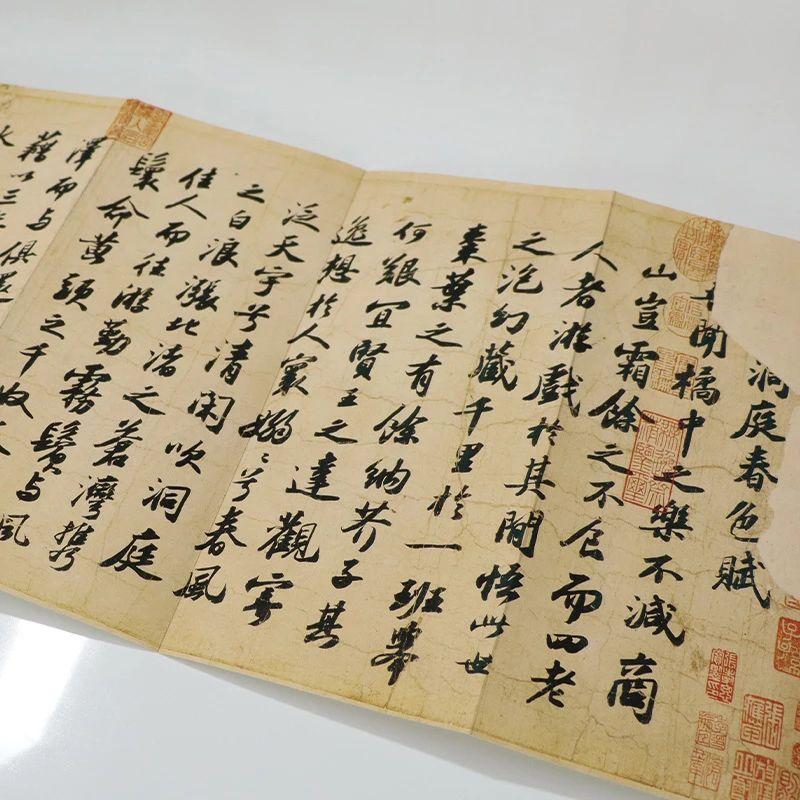 洞庭春色賦
聞橘中之樂不減商
山豈霜餘之不食而四老
人者游戲於其間悟此世
之泡幻藏千里於一班舉
棗葉之有餘納芥子其
何艱宜賢王之達觀寄
逸想於人寰嫋〻兮春風
泛天宇兮清閑吹洞庭
之白浪漲北渚之蒼灣携
佳人而往游勤霧鬢与風
鬟命黃頭之千奴
澤而与俱還
以